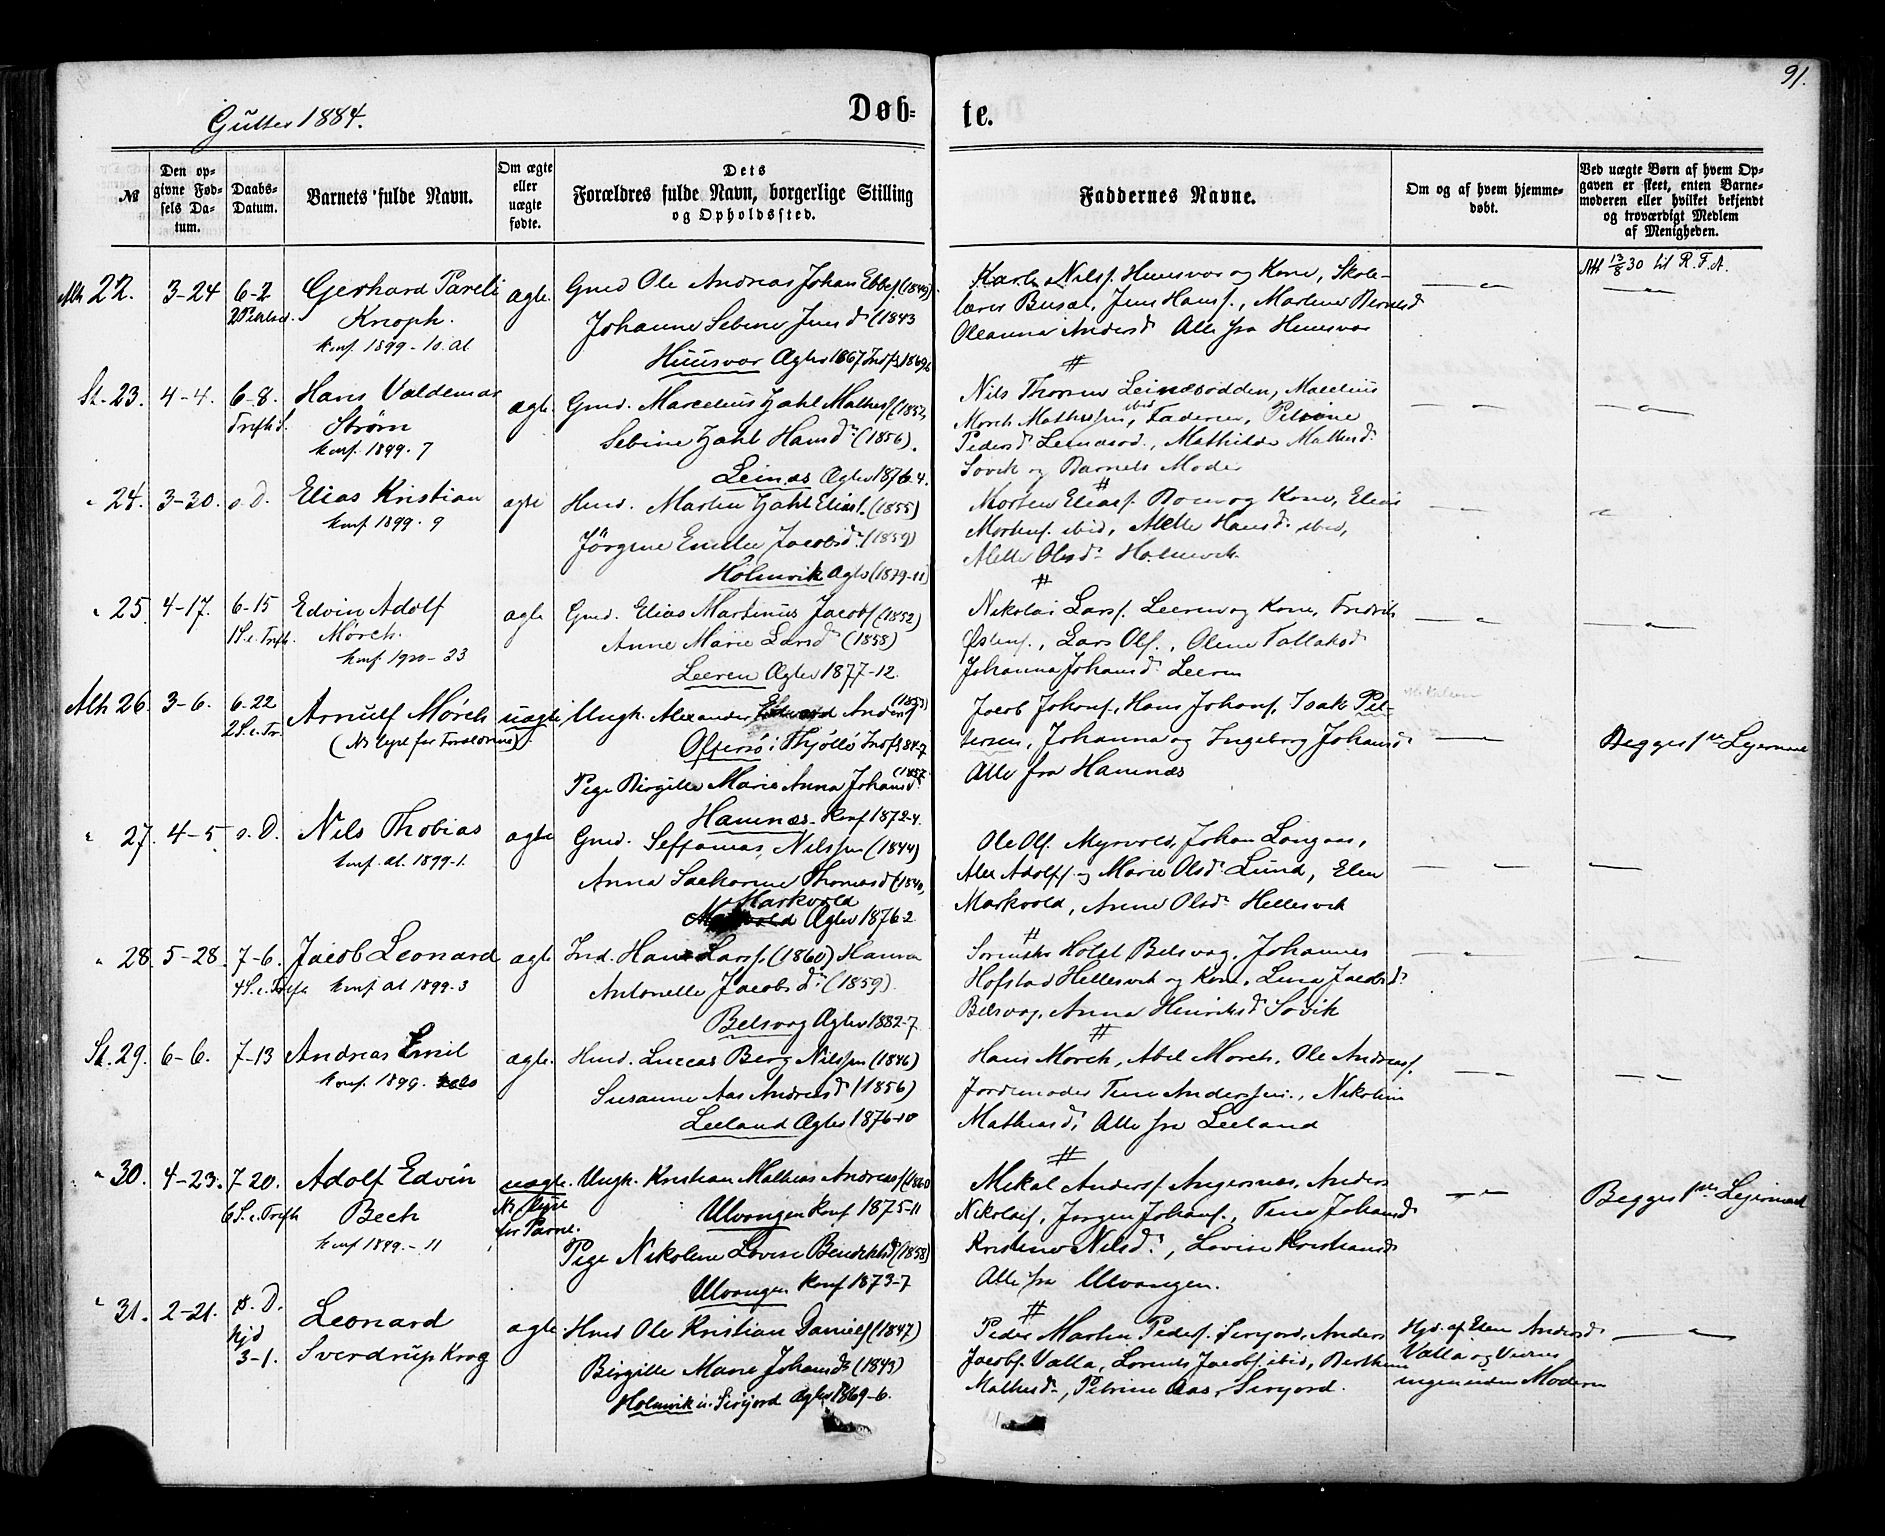 91.
Gutter 1884.
Døb-
te.
№
Den op-
givne Fød-
sels Da-
tum.
Daabs-
Datum.
Barnets fulde Navn.
Om ægte
eller
uægte
fødte.
Dets
Forældres fulde Navn, borgerlige Stilling
og Opholdssted.
Faddernes Navne.
Om og af hvem hjemme-
døbt.
Ved uægte Børn af hvem Op-
gaven er skeet, enten Barne-
moderen eller hvilket bekjendt
og troværdigt Medlem
af Menigheden.
Alh 22. 3-24 6-2
Gerhard Pareli
Knoph.
konf. 1899-10. al
ægte
Gmd Ole Andreas Johan Ebbes. (1849)
Johanne Sebine Jens d. (1843
Huusvær Ægtev 1867
Karl Nilss. Huusvær og Kone, Skole-
lærer Busæt, Jens Hanss., Martene Berntsd
Oleanna Andersd Alle fra Huusvær
Att 13/8 30 til R.F.A.
St. 23. 4-4. 6-8.
Hans Valdemar
Strøm
konf. 1899. 7
ægte
Gmd. Marcelius Zahl Mathess (1852,
Sebine Zahl Hans d. (1856).
Leinæs Ægtev 1876-4.
Nils Thoresen Leinæsodden,
Morch Mathissen, ibid Faderen, Petrine
Peders d. Leinæsod., Mathilde Mathesd.
Søvik og Barnets Moder
" 24. 3-30. s. D.
Elias Kristian
konf 1899. 9
ægte
Hmd. Martin Zahl Eliass. (1855)
Jörgine Emilie Jacobsd. (1859)
Holmvik Ægtev (1879-11)
Morten Eliass. Boen og Kone, Elias
Mortens. ibid, Alette Hansd. ibid,
Alette Olsd. Holmvik.
" 25. 4-17. 6-15
1 S. e. Trefh.
Edvin Adolf
Mörch.
konf. 1900-23
ægte
Gmd. Elias Martinus Jacobs. (1852)
Anne Marie Larsd. (1858)
Leeren Ægtev 1877-12.
Nikolai Larss. Leeren og Kone, Fredrik
Østens., Lars Ols., Olene Tollaksd
Johanna Johansd. Leeren
Alh 26. 3-6. 6-22
2 S. e. Tr.
Arnulf Mörch
uægte
Ungk. Alexander Edvard Anders. (1853)
Oftersø i Thjøttø Indfl 84-7
Pige Birgitte Marie Anna Johansd. (1857
Hamnæs. Konf 1872-4.
Jacob Johans., Hans Johans., Isak Pet-
tersen, Johanna og Ingeborg Johansd.
Alle fra Hamnæs
Begges 1ste Lejermaal
" 27. 4-5 s. D.
Nils Thobias
konf. al. 1899-1.
ægte
Gmd. Seffanias Nilssen (1844)
Anna Sacharine Thomasd (1840,
Markvold
Ægtev 1876-2
Ole Ols. Myrvold, Johan Langaas,
Alex Adolfs. og Marie Olsd. Lund, Elen
Markvold, Anne Olsd. Hellesvik
" 28. 5-28. 7-6.
4 S. e. Trefh
Jacob Leonard
konf al 1899-3
ægte
Ind. Hans Larss. (1860) Hanna
Antonette Jacobsd. (1859).
Belsvaag Ægtev 1882-7
Sørensen Holst Belsvaag, Johannes
Hofstad Hellesvik og Kone, Lina Jacobsd.
Belsvaag, Anna Henriksd Søvik
St. 29. 6-6. 7-13
Andreas Emil
konf. 1899.
ægte.
Hmd. Lucas Berg Nilssen (1846)
Susanne Aas Andreasd (1856)
Leeland Ægtev 1876-10
Hans Morch, Abel Morch, Ole Andreass.
Jordemoder Tine Anderssen., Nikoline
Mathiasd. Alle fra Leeland
" 30. 4-23. 7-20.
6 S. e. Trefh
Adolf Edvin
Bech
konf 1899.-11
uægte.
Ungk. Kristian Mathias Andreass (1860
Ulvangen Konf. 1875-11
Pige Nikoline Lovise Bendiktsd (1858)
Ulvangen Konf 1873-7
Mekal Anderss. Angersnæs, Anders
Nikolais., Jørgen Johans., Tina Johansd
Kristine Nilsd., Lovise Kristiansd
Alle fra Ulvangen.
Begges 1ste Lejermaal
" 31. 2-21. s. D.
hjd
3-1.
Leonard
Sverdrup Krog
ægte.
Hmd Ole Kristian Daniels (1847)
Birgitte Marie Johansd (1849)
Holmvik u. Sivjord Ægtev 1869-6.
Peder Martin Peders. Sivjord, Anders
Jacobs. Valla, Lorents Jacobs. ibid, Berthine
Mathisd., Petrine Aas, Sivjord.
Hjd. af Elen Andersd.
Valla og Vidne
ingen uden Moderen